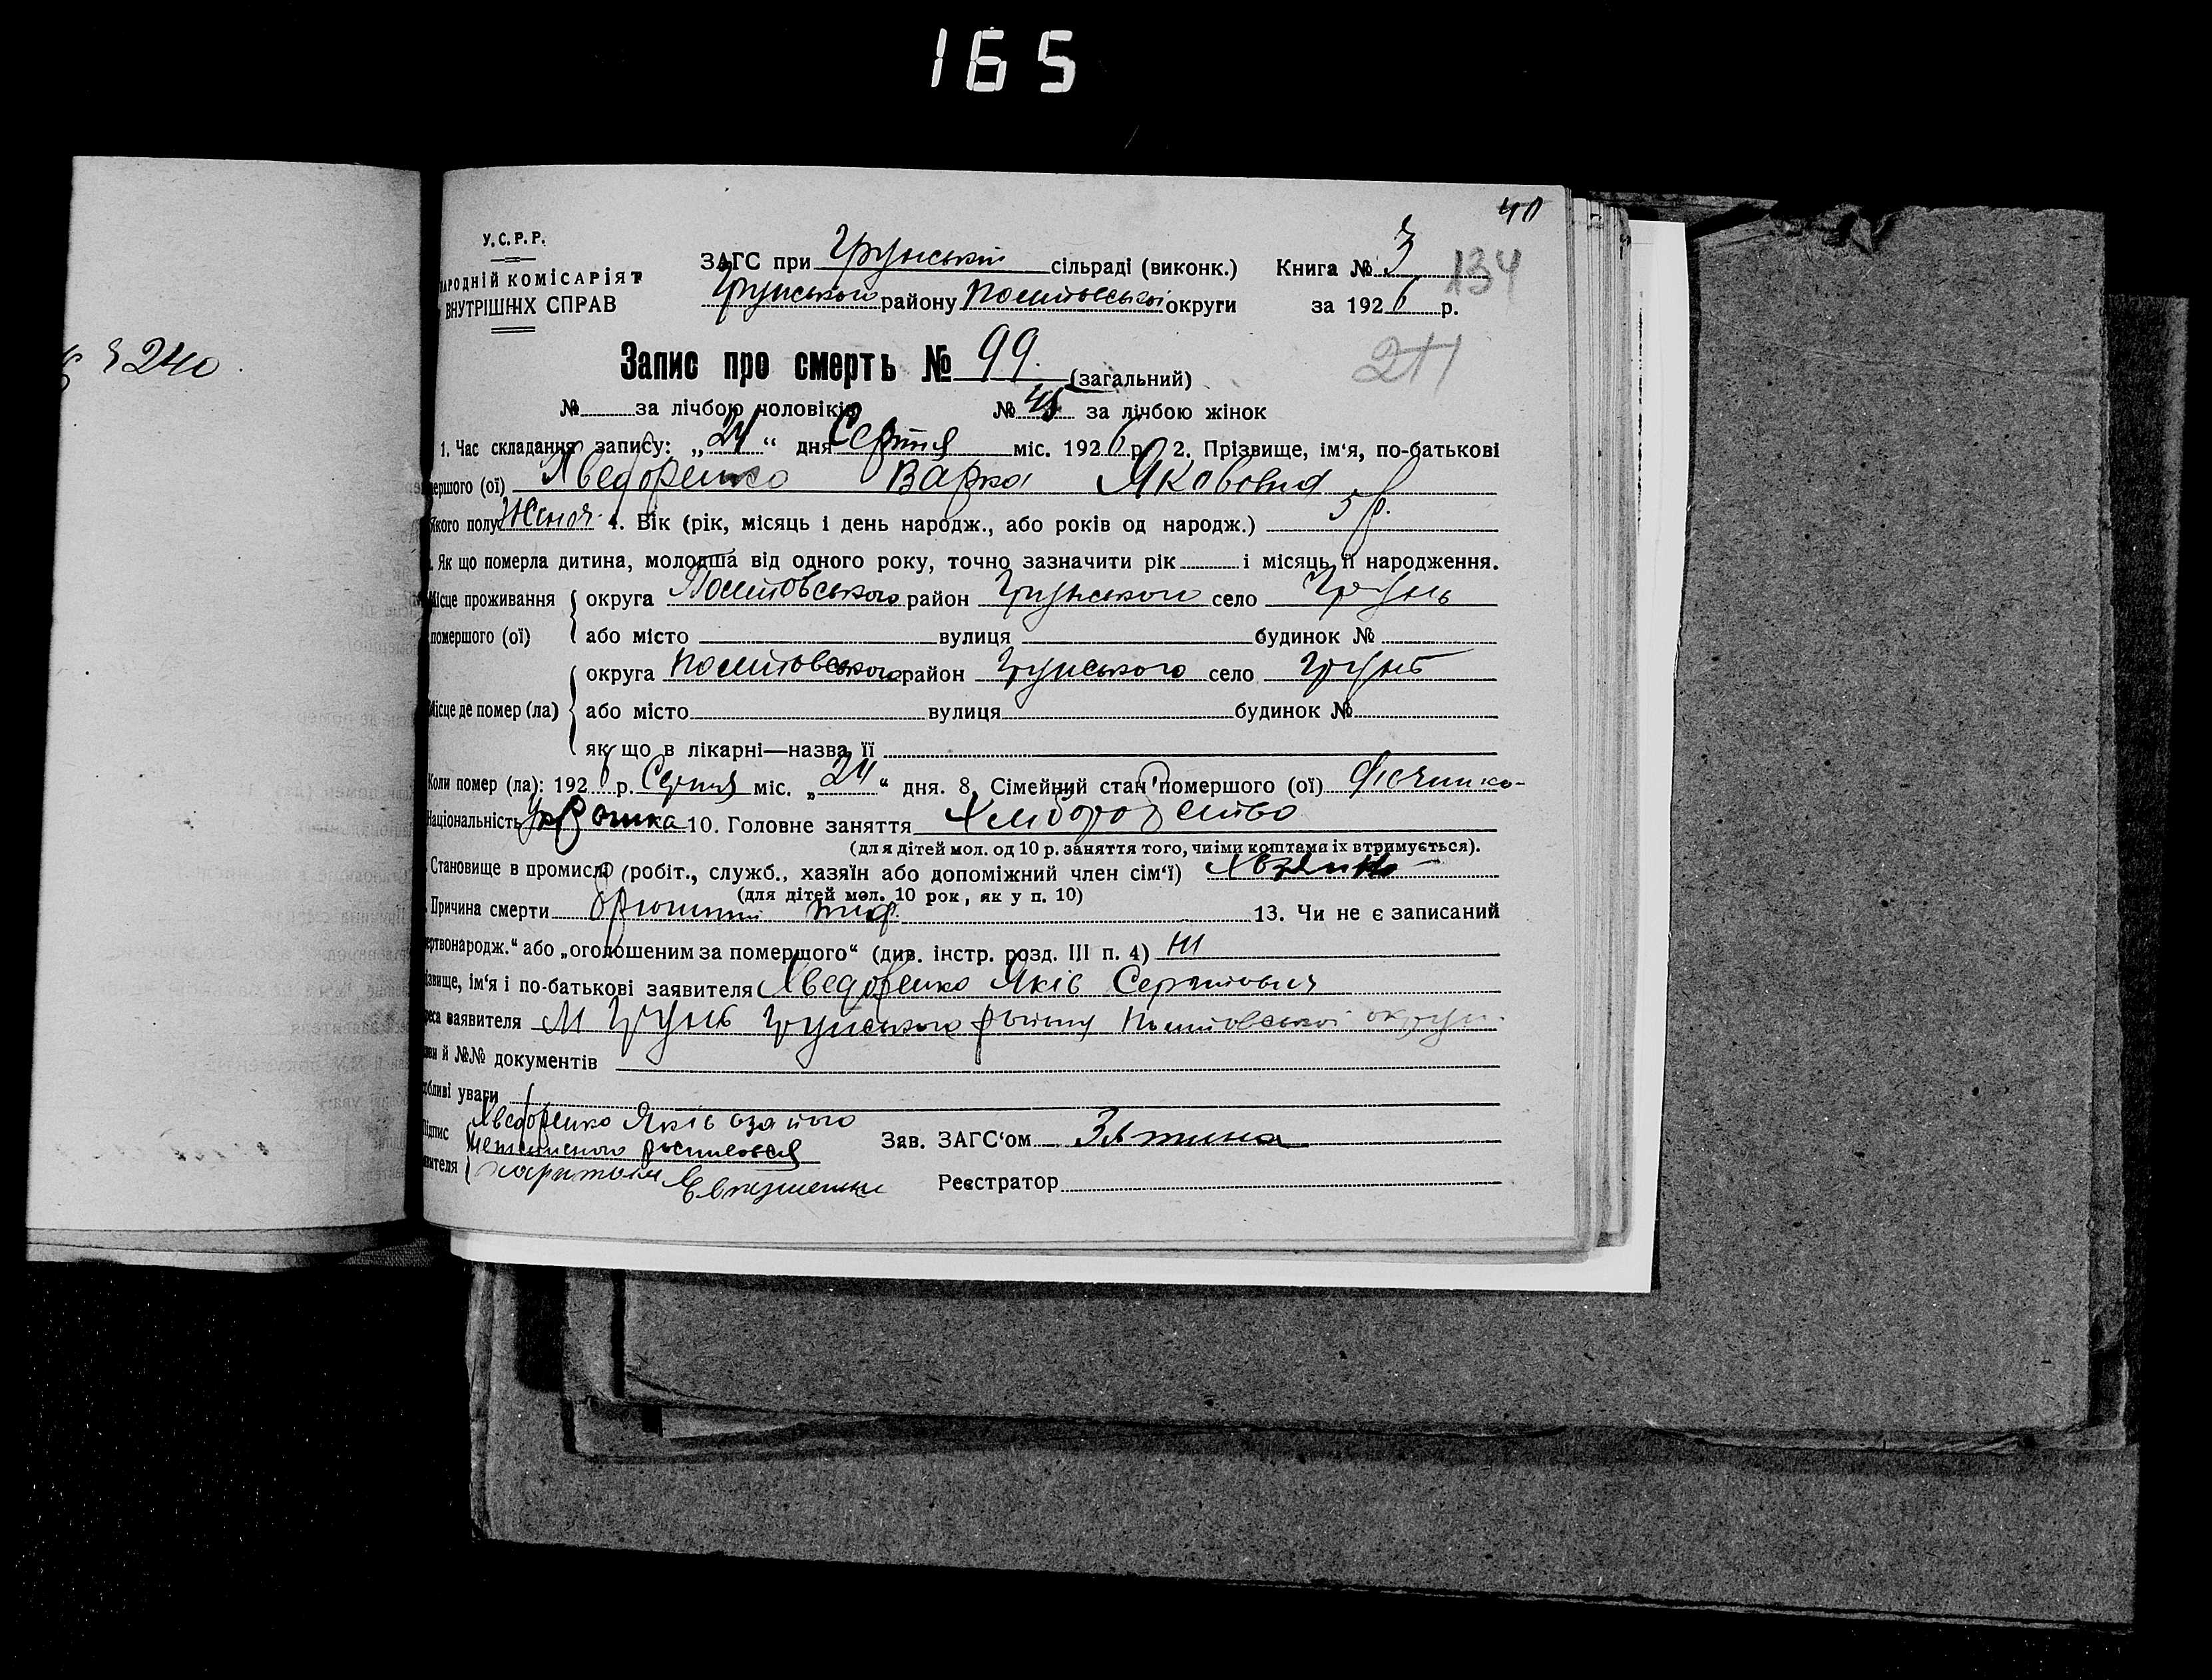 165
40
У.С.Р.Р.
НАРОДНІЙ КОМІСАРІЯТ
ВНУТРІШНІХ СПРАВ
ЗАГС при Грунській сільраді (виконк.) Книга № 3
134
Грунського району Полтовської округи за 1926 р.
240
Запис про смерть № 99. (загальний)
211
№ за лічбою чоловіків № 45 за лічбою жінок
1. Час складання запису: „24“ дня Серпня міс. 1926 р. 2. Прізвище, ім'я, по-батькові
мершого (ої) Хведоренко Варка Якововна
Якого полу Жіноч. 4. Вік (рік, місяць і день народж., або років од народж.) 5 р.
. Як що померла дитина, молодша від одного року, точно зазначити рік і місяць її народження.
Місце проживання округа Полтовського район Грунського село Грунь
помершого (ої) або місто вулиця будинок №
округа Полтовського район Грунського село Грунь
Місце де помер (ла) або місто вулиця будинок №
як що в лікарні—назва її
Коли помер (ла): 1926 р. Серпня міс. „24“ дня. 8. Сімейний стан помершого (ої)
Національність 10. Головне заняття Хліборобство
(для дітей мол. од 10 р. заняття того, чиїми коштами їх втримується).
. Становище в промислі (робіт., служб., хазяїн або допоміжний член сім'ї)
(для дітей мол. 10 рок, як у п. 10)
. Причина смерти брюшний тиф. 13. Чи не є записаний
ертвонародж.“ або „оголошеним за помершого“ (див. інстр. розд. III п. 4) Ні
ізвище, ім'я і по-батькові заявителя Хведоренко Яків
реса заявителя М Грунь Грунського району Полтовської округи
зви й №№ документів
обливі уваги
Підпис Хведоренко Яків а за його
неписьменого росписався
явителя
Зав. ЗАГС'ом
Реєстратор